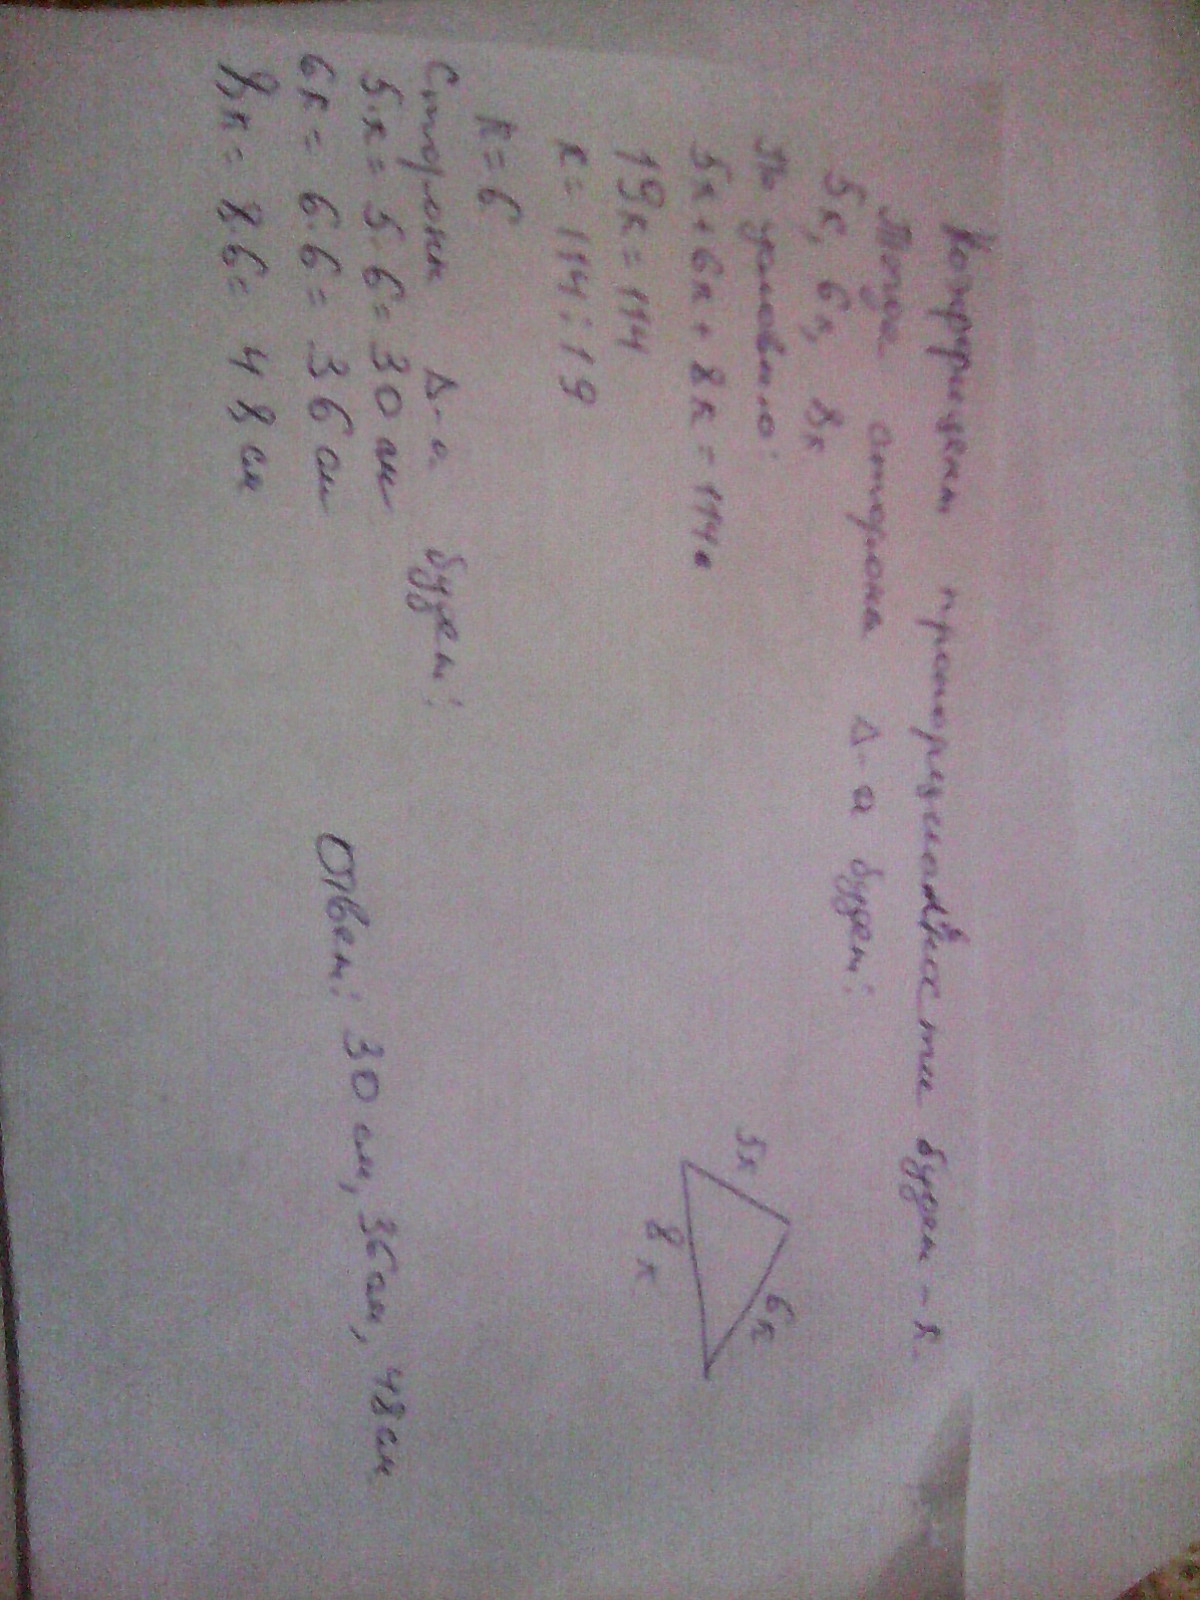 Коэффициент пропорциональности будет – к.
Тогда сторона Δ-а будет:
5к, 6к, 8к
По условию:
5к + 6к + 8к = 114.
19к = 114
к = 114 : 19
к = 6
Стороны Δ-а будет:
5к = 5·6 = 30 см
6к = 6·6 = 36 см
8к = 8·6 = 48 см
5к
6к
8к
Ответ: 30 см, 36 см, 48 см